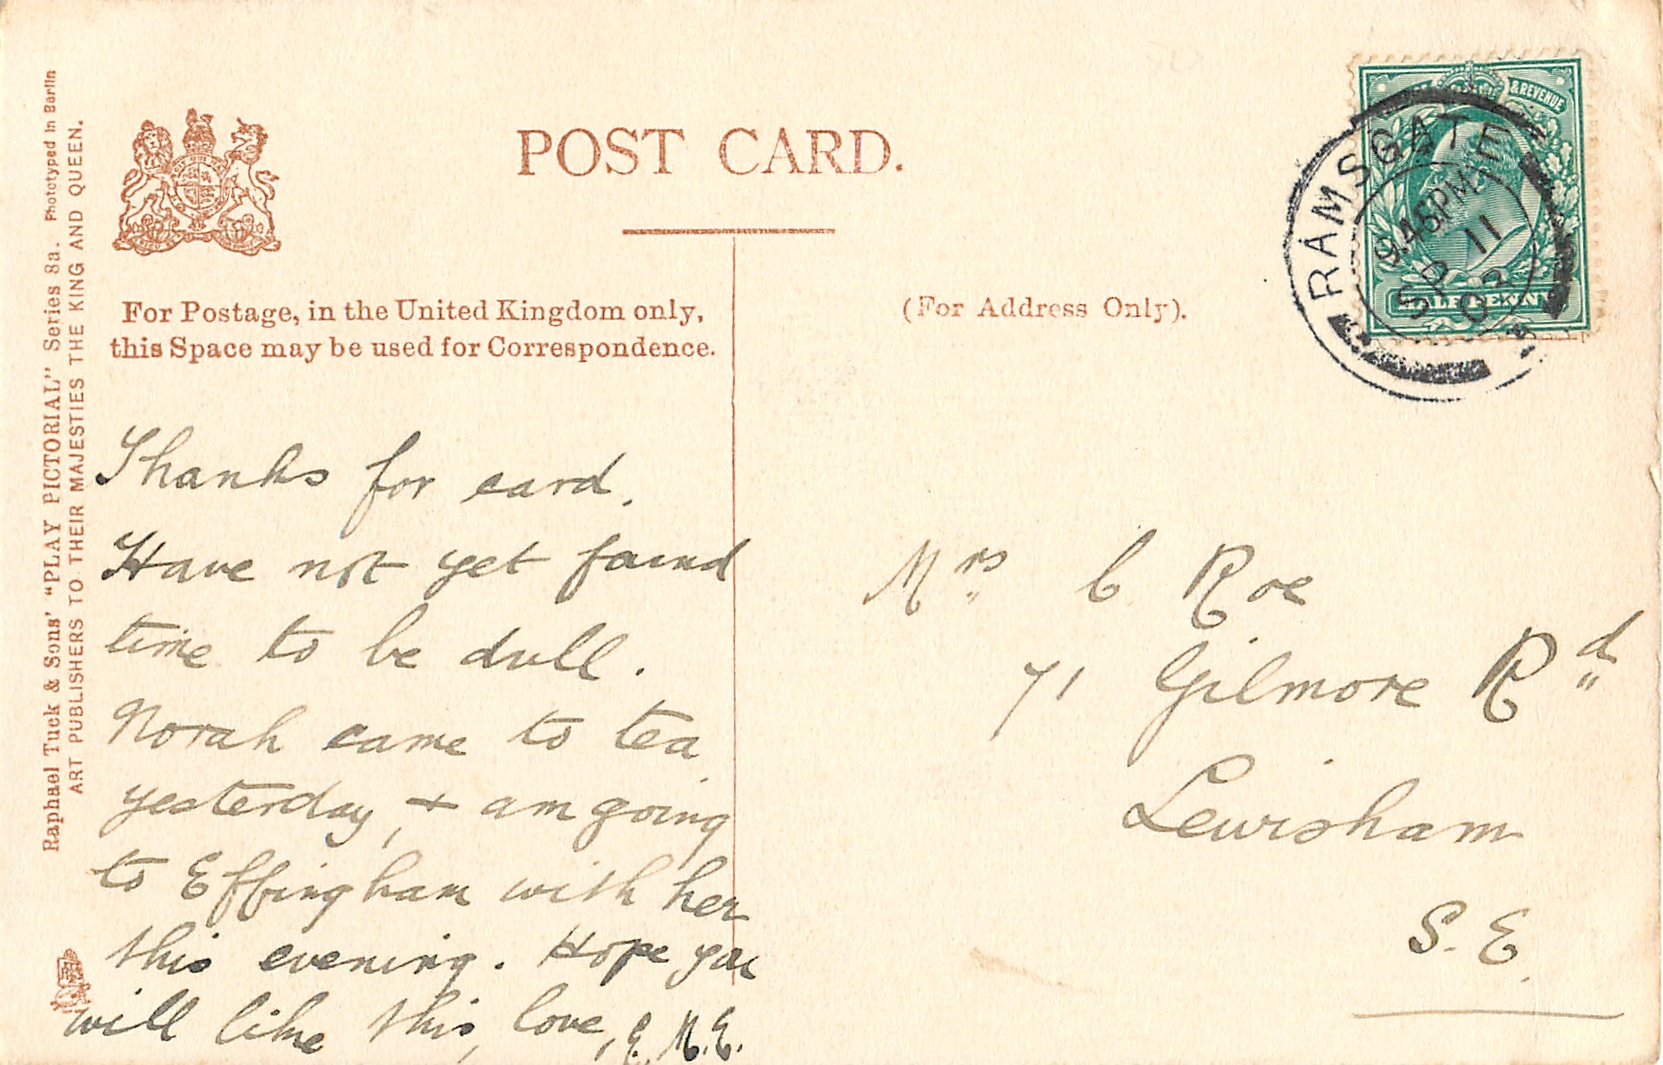 Raphael Tuck & Sons' "PLAY PICTORIAL" Series 8a. Phototyped in Berlin
ART PUBLISHERS TO THEIR MAJESTIES THE KING AND QUEEN.
POST CARD.
For Postage, in the United Kingdom only,
this Space may be used for Correspondence.
(For Address Only).
& REVENUE
HALFPENNY
RAMSGATE
9.45PM
SP 11
03
Thanks for card.
Have not yet found
time to be dull.
Norah came to tea
yesterday, + am going
to Effingham with her
this evening. Hope you
will like this, love, E. M. E.
Mrs C Roe
71 Gilmore Rd
Lewisham
S. E.